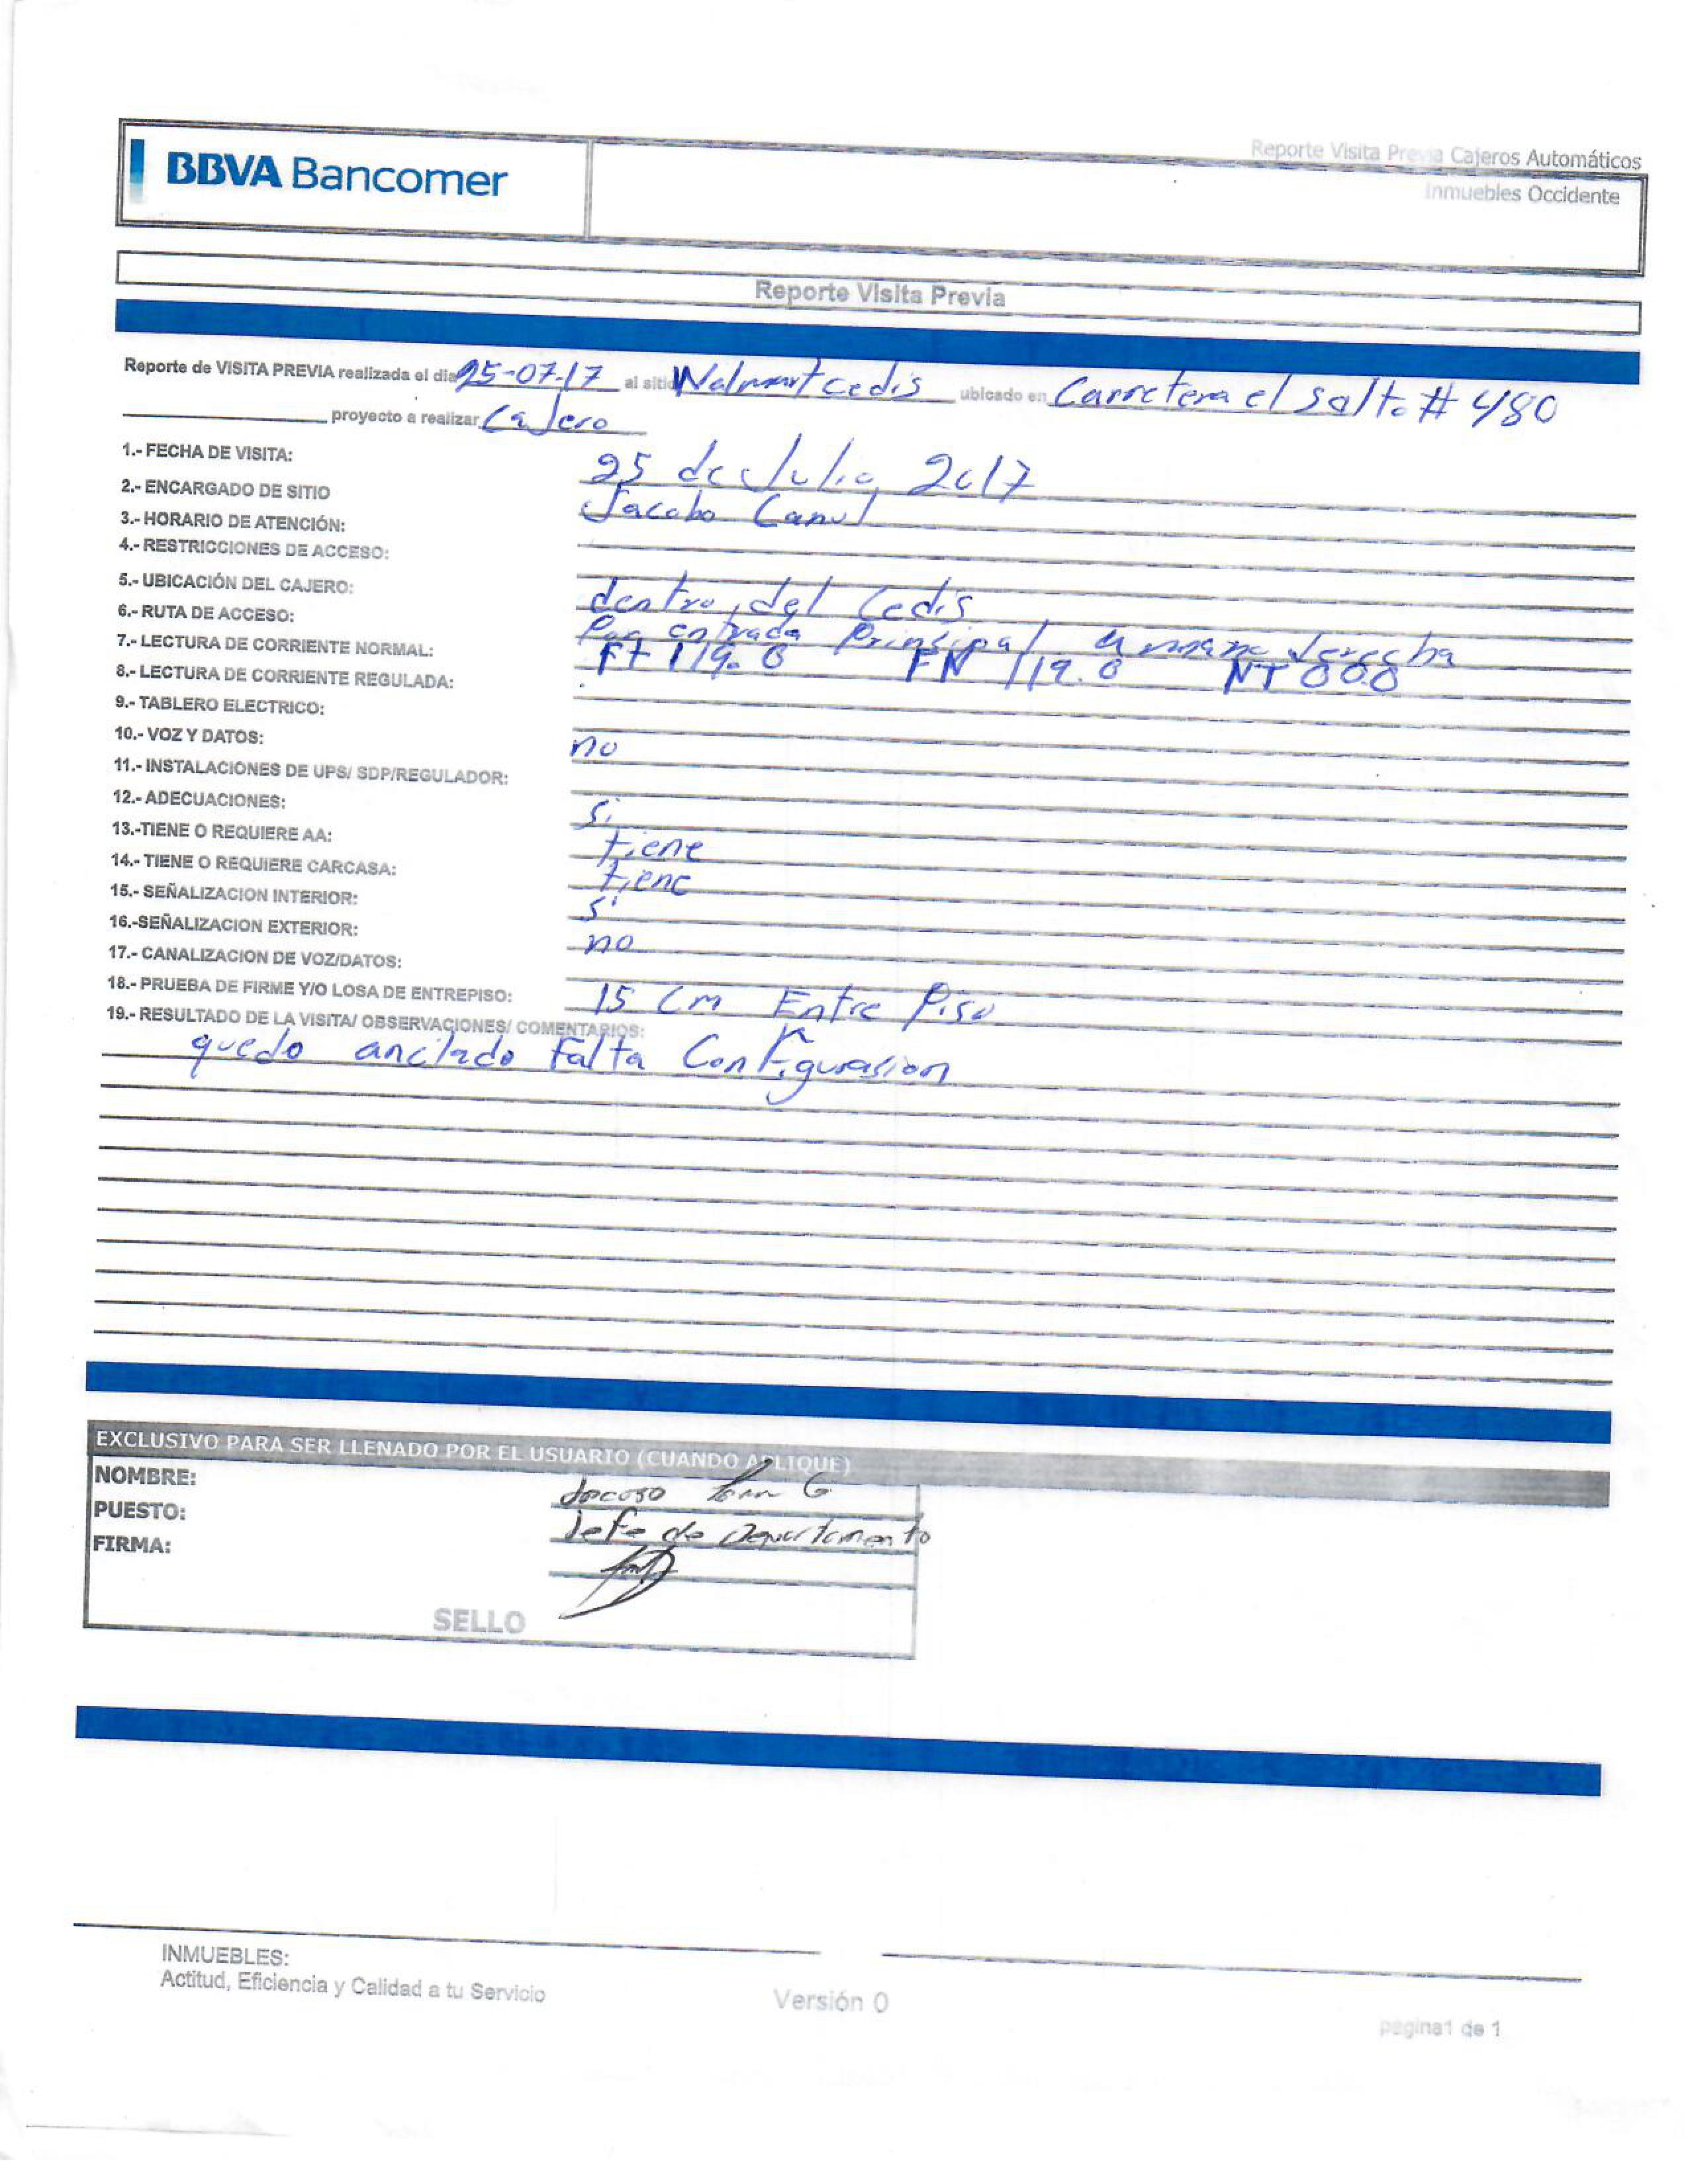 BBVA Bancomer
Reporte Visita Previa Cajeros Automáticos
Inmuebles Occidente
Reporte Visita Previa
Reporte de VISITA PREVIA realizada el dia 25-07-17 al sitio Walmart cedis ubicado en Carretera el salto # 480
proyecto a realizar Cajero
1.- FECHA DE VISITA: 25 de Julio 2017
2.- ENCARGADO DE SITIO Jacobo Canul
3.- HORARIO DE ATENCIÓN:
4.- RESTRICCIONES DE ACCESO:
5.- UBICACIÓN DEL CAJERO: dentro del Cedis
6.- RUTA DE ACCESO: Por entrada Prinsipal a mano derecha
7.- LECTURA DE CORRIENTE NORMAL: FT 119.0 FN 119.0 NT 00.0
8.- LECTURA DE CORRIENTE REGULADA:
9.- TABLERO ELECTRICO:
10.- VOZ Y DATOS: no
11.- INSTALACIONES DE UPS/ SDP/REGULADOR:
12.- ADECUACIONES: Si
13.-TIENE O REQUIERE AA: tiene
14.- TIENE O REQUIERE CARCASA: tiene
15.- SEÑALIZACION INTERIOR: si
16.-SEÑALIZACION EXTERIOR: no
17.- CANALIZACION DE VOZ/DATOS:
18.- PRUEBA DE FIRME Y/O LOSA DE ENTREPISO: 15 Cm Entre Piso
19.- RESULTADO DE LA VISITA/ OBSERVACIONES/ COMENTARIOS:
quedo anclado Falta Configurasion
EXCLUSIVO PARA SER LLENADO POR EL USUARIO (CUANDO APLIQUE)
NOMBRE:
PUESTO: Jefe de Departamento
FIRMA:
SELLO
INMUEBLES:
Actitud, Eficiencia y Calidad a tu Servicio
Versión 0
página1 de 1